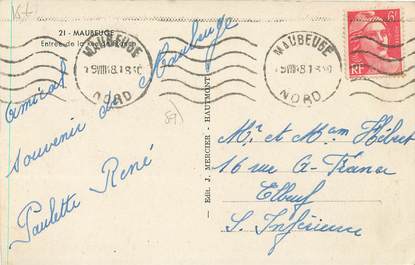 21 - MAUBEUGE
Entrée de la
MAUBEUGE
NORD
MAUBEUGE
NORD
RF
Amical
souvenir de Maubeuge
Paulette René
Edit. J. MERCIER - HAUTMONT
Mr et Mam Hébert
16 rue A-France
Elbeuf
S. Inférieure